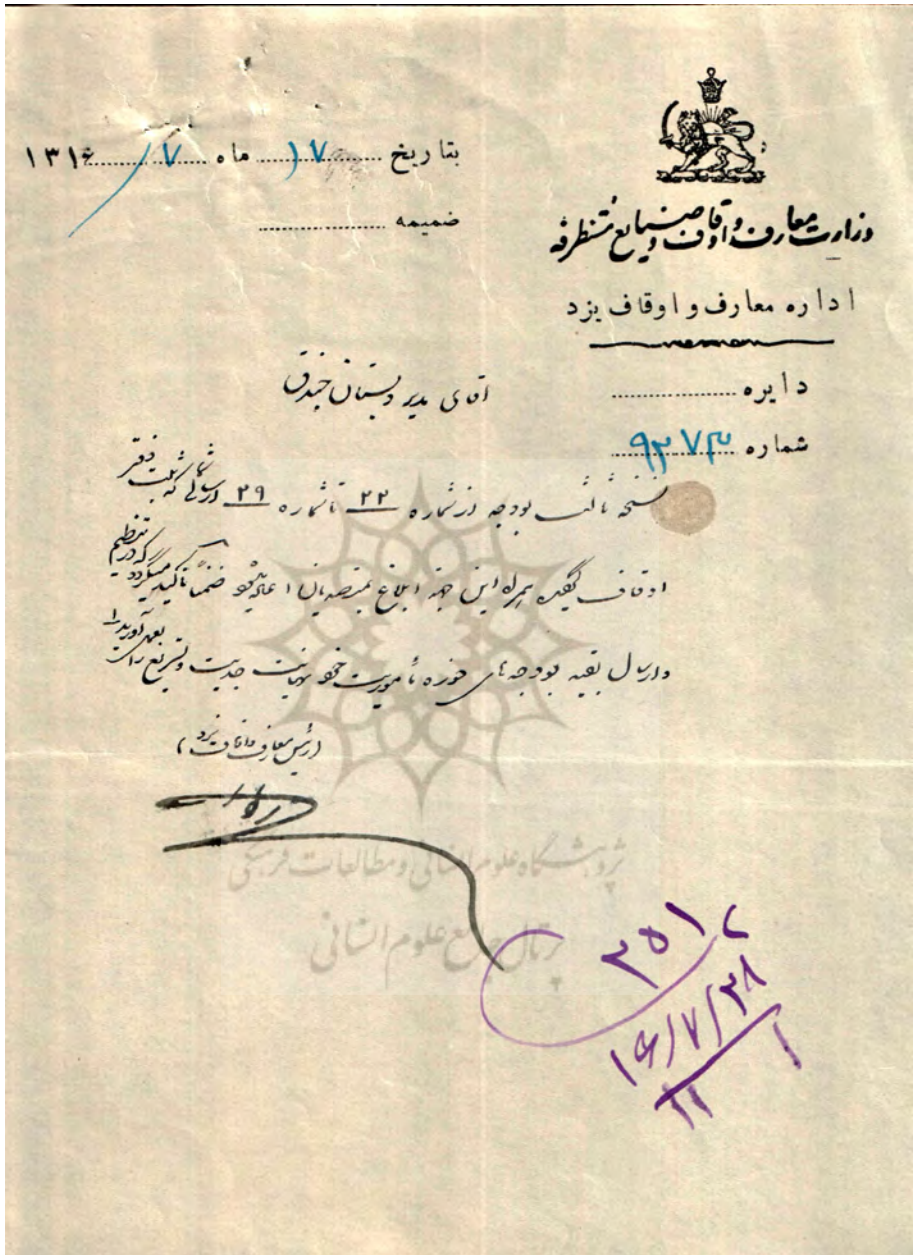 بتاریخ ۱۷ ماه ۷ ۱۳۱۶
ضمیمه
وزارت معارف و اوقاف و صنایع مستظرفه
اداره معارف و اوقاف یزد
دایره
شماره ۹۲۷۳
آقای مدیر دبستان خندق
نسخه ثالث بودجه از شماره ۲۲ تا شماره ۲۹ ارسالی شما که ثبت دفتر
اوقاف گردیده همراه این جهة ابلاغ بمتصدیان اعاده میشود ضمناً تاکید میگردد که در تنظیم
وارسال بقیه بودجه های حوزه مأموریت خود نهایت جدیت و تسریع را بعمل آورید
رئیس معارف و اوقاف یزد
۲۵۱
۱۶/۷/۲۸
پژوهشگاه علوم انسانی و مطالعات فرهنگی
پرتال جامع علوم انسانی